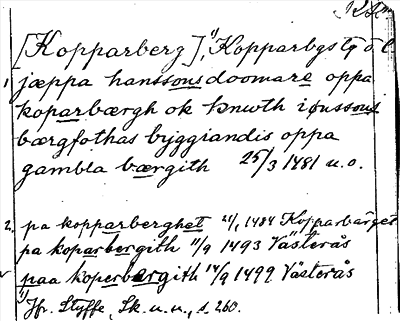 [Kopparberg], 1) Kopparbgs tg o l
1, jæppa hanssons doomare oppa
koparbærgh ok knwth iønssons
bærgfothas byggiandis oppa
gambla bærgith 25/3 1481 u.o.
2. pa kopparberghet 21/1 1484 Kopparbärget
pa koparbergith 11/9 1493 Västerås
paa koperbærgith 14/9 1499 Västerås
1) Jfr. Styffe, Sk. u. u., s. 260.